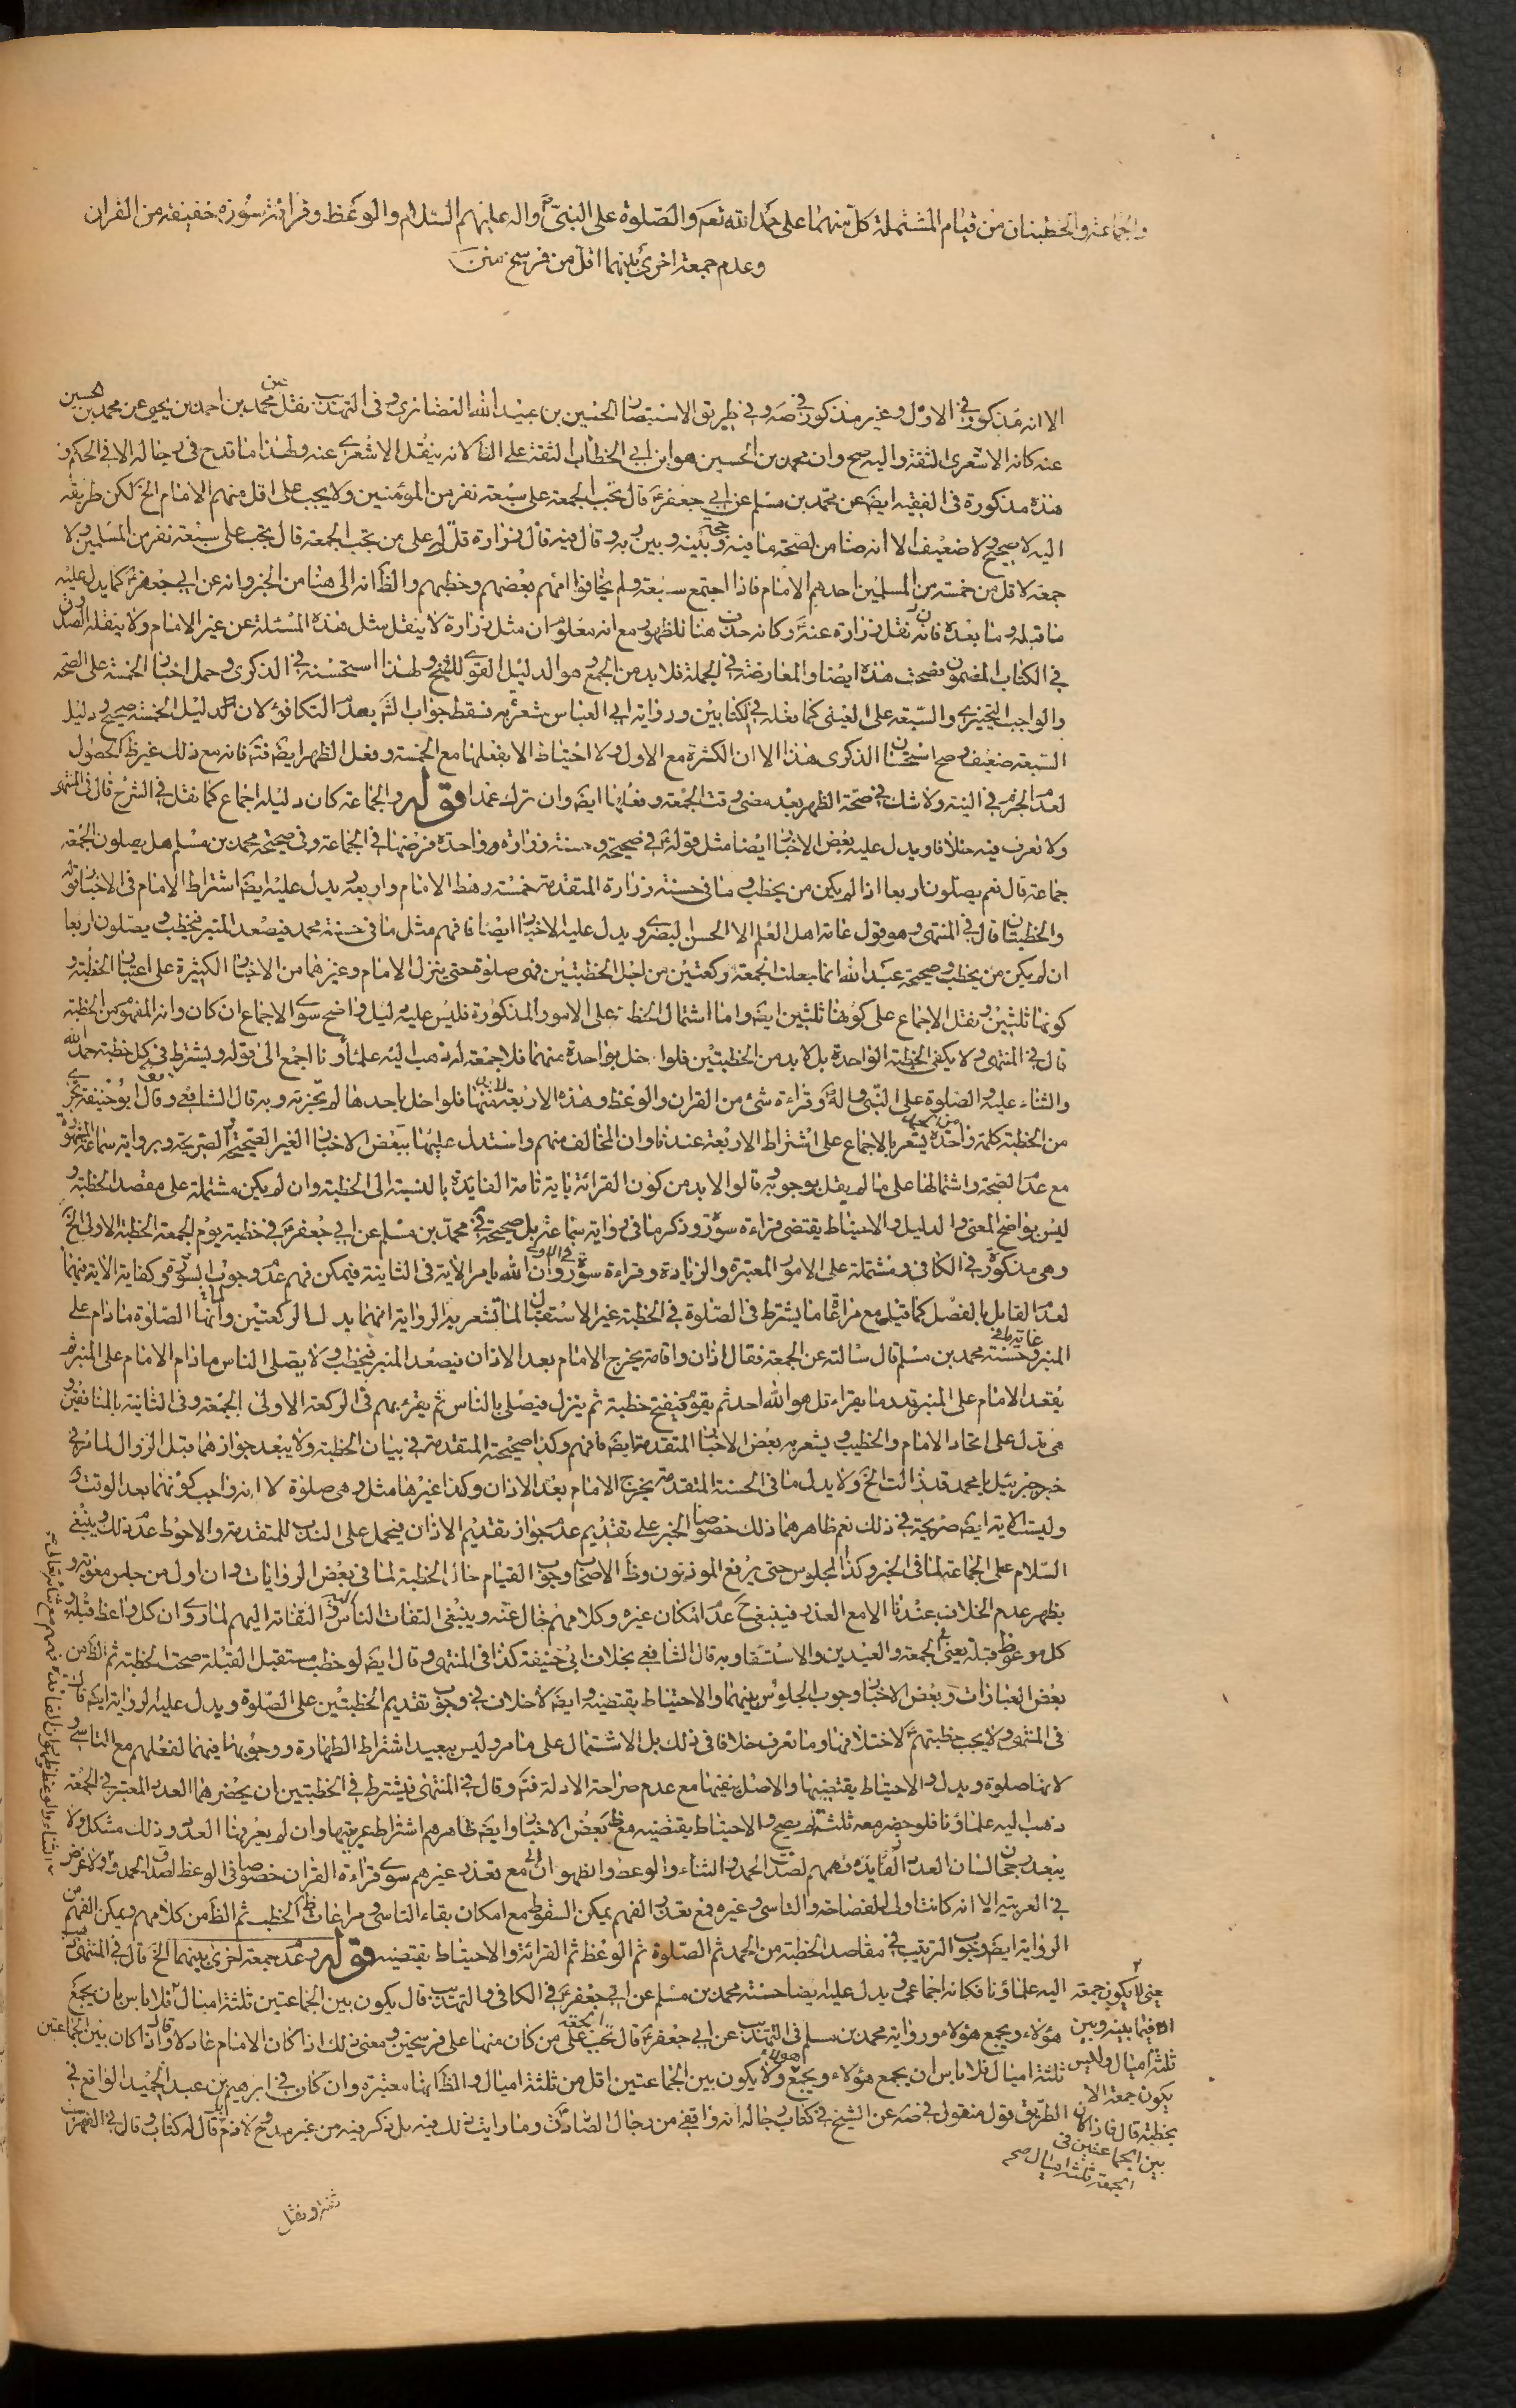 والجماعة والخطبتان من قيام المشتملة كل منهما على حمد الله تعم والصلوة على النبي واله عليهم السلام والوعظ وقرائة سورة خفيفة من القران
وعدم جمعة اخرى بينهما اقل من فرسخ متن
الا انه مذكور في الاول وغير مذكور في صه وفي طريق الاستبصار الحسين بن عبيد الله الغضائري وفي التهذيب نقل عن محمد بن احمد بن يحيى عن محمد بن الحسين
عنه كانه الاشعري الثقة واليه صح وان محمد بن الحسين هو ابن ابي الخطاب الثقة على الظ لانه ينقل الاشعري عنه ولهذا ما قدح في رجاله الا في الحكم و
هذه مذكورة في الفقيه ايض عن محمد بن مسلم عن ابي جعفر ع قال تجب الجمعة على سبعة نفر من المؤمنين ولا يجب على اقل منهم الامام الخ لكن طريقه
اليه لا صحيح ولا ضعيف الا انه ضامن لصحة ما فيه وحجة بينه وبين ربه وقال فيه قال زرارة قلت له على من تجب الجمعة قال تجب على سبعة نفر من المسلمين ولا
جمعة لاقل من خمسة من المسلمين احدهم الامام فاذا اجتمع سبعة ولم يخافوا امهم بعضهم وخطبهم والظ انه الى هنا من الخبر وانه عن ابي جعفر ع كما يدل عليه
ما قبله وما بعده فانه نقل زرارة عنه ع وكانه حذف هنا للظهور مع انه معلوم ان مثل زرارة لا ينقل مثل هذه المسئلة عن غير الامام ولا ينقله الصدوق
في الكتاب المضمون فصحت هذه ايضا والمعارضة في الجملة فلا بد من الجمع هو الدليل القوي للشيخ ولهذا استحسنه في الذكرى وحمل اخبار الخمسة على الصحة
والواجب التخييري والسبعة على العيني كما نقله في الكتابين ورواية ابي العباس مشعرة به فسقط جواب الشه بعدم التكافؤ لان دليل الخمسة صحيح ودليل
السبعة ضعيف وصح استحسان الذكرى هذا الا ان الكثرة مع الاول ولا احتياط الا بفعلها مع الخمسة وفعل الظهر ايض فتم فانه مع ذلك غير ظ الحصول
لعدم الجزم في النية ولا شك في صحة الظهر بعد مضي وقت الجمعة وفعلها ايض وان ترك عمدا قوله والجماعة كان دليله اجماع كما نقل في الشرح قال في المنتهى
ولا نعرف فيه خلافا ويدل عليه بعض الاخبار ايضا مثل قوله ع في صحيحة وحسنة زرارة وواحدة فرضها في الجماعة وفي صحيحة محمد بن مسلم هل يصلون الجمعة
جماعة قال نعم يصلون اربعا اذا لم يكن من يخطب وما في حسنة زرارة المتقدمة خمسة رهط الامام واربعة ويدل عليه ايض اشتراط الامام في الاخبار قوله
والخطبتان قال في المنتهى وهو قول عامة اهل العلم الا الحسن البصري ويدل عليه الاخبار ايضا فافهم مثل ما في حسنة محمد فيصعد المنبر فيخطب ويصلون اربعا
ان لم يكن من يخطب وصحيحة عبد الله انما جعلت الجمعة ركعتين من اجل الخطبتين فهي صلوة حتى ينزل الامام وغيرهما من الاخبار الكثيرة على اعتبار الخطبة و
كونها ثنتين ونقل الاجماع على كونها ثنتين ايض واما اشتمال الخطبة على الامور المذكورة فليس عليه دليل واضح سوى الاجماع ان كان وانه المفهوم من الخطبة
قال في المنتهى ولا يكفي الخطبة الواحدة بل لا بد من الخطبتين فلو اخل بواحدة منهما فلا جمعة له ذهب اليه علماؤنا اجمع الى قوله ويشترط في كل خطبة حمد الله
والثناء عليه والصلوة على النبي واله وقراءة شيء من القران والوعظ وهذه الاربعة لا بد منها فلو اخل باحدها لم يجزئه وبه قال الشافعي وقال ابو حنيفة يجزي
من الخطبة كلمة واحدة يشعر بالاجماع على اشتراط الاربعة عندنا وان المخالف منهم واستدل عليها ببعض الاخبار الغير الصحيحة الصريحة وبرواية سماعة المشهورة
مع عدم الصحة واشتمالها على ما لم يقل بوجوبه قالوا لا بد من كون القرائة باية تامة الفايدة بالنسبة الى الخطبة وان لم يكن مشتملة على مقصد الخطبة و
ليس بواضح المعنى والدليل والاحتياط يقتضي قراءة سورة وذكر ما في رواية سماعة بل صحيحة محمد بن مسلم عن ابي جعفر ع في خطبة يوم الجمعة الخطبة الاولى الخ
وهي مذكورة في الكافي ومشتملة على الامور المعتبرة والزيادة وقراءة سورة في الاولى وان الله يامر الاية في الثانية فيمكن فهم عدم وجوب السورة وكفاية الاية فيهما
لعدم القايل بالفصل كما قيل مع مراعاة ما يشترط في الصلوة في الخطبة غير الاستقبال لما تشعر به الرواية انهما بدل الركعتين وانها الصلوة ما دام على
المنبر وحسنة محمد بن مسلم قال سالته عن الجمعة فقال اذان واقامة يخرج الامام بعد الاذان فيصعد المنبر فيخطب ولا يصلي الناس ما دام الامام على المنبر ثم
يقعد الامام على المنبر قدر ما يقراء قل هو الله احد ثم يقوم فيفتح خطبة ثم ينزل فيصلي بالناس ثم يقرء بهم في الركعة الاولى الجمعة وفي الثانية بالمنافقين و
هي تدل على اتحاد الامام والخطيب ويشعر به بعض الاخبار المتقدمة ايض فافهم وكذا صحيحة المتقدمة في بيان الخطبة ولا يبعد جوازهما قبل الزوال لما مر في
خبر جبرئيل يا محمد قد زالت الخ ولا يدل ما في الحسنة المتقدمة يخرج الامام بعد الاذان وكذا غيرها مثل وهي صلوة لا انه واجب كونهما بعد الوقت و
وليست الاية ايض صريحة في ذلك نعم ظاهرهما ذلك خصوصا الخبر على تقديم عدم جواز تقديم الاذان فيحمل على الندب للمتقدمة والاحوط عدم ذلك وينبغي
السلام على الجماعة لما في الخبر وكذا الجلوس حتى يرفع المؤذنون وظ الاصحاب وجوب القيام حال الخطبة لما في بعض الروايات وان اول من جلس معوية و
يظهر عدم الخلاف عندنا الا مع العذر فينبغي ح عدم امكان غيره وكلامهم خال عنه وينبغي التفات الناس اليه والتفاته اليهم لما روي ان كل واعظ قبلة و
كل موعوظ قبلة يعني في الجمعة والعيدين والاستسقاء وبه قال الشافعي بخلاف ابي حنيفة كذا في المنتهى وقال ايض لو خطب مستقبل القبلة صحت الخطبة ثم الظ من
بعض العبارات وبعض الاخبار وجوب الجلوس بينهما والاحتياط يقتضيه وايض لا خلاف في وجوب تقديم الخطبتين على الصلوة ويدل عليه الرواية ايض قال
في المنتهى ولا يجب خطبتهم ع لاختلافها وما نعرف خلافا في ذلك بل الاشتمال على ما مر وليس ببعيد اشتراط الطهارة ووجوبها فيهما لفعلهم مع التاسي و
لانها صلوة ويدل والاحتياط يقتضيها والاصل ينفيها مع عدم صراحة الادلة فتم وقال في المنتهى ويشترط في الخطبتين ان يحضرهما العدد المعتبر في الجمعة
ذهب اليه علماؤنا فلو حضر معه ثلثة لم يصح والاحتياط يقتضيه مع ظ بعض الاخبار وايض ظاهرهم اشتراط عربيتها وان لم يعرفها العدد وذلك مشكل ولا
يبعد رجحان لسان العدد لفايدة فهمهم لصدق الحمد والثناء والوعظ والظهور ان مع تعذر غيرهم سوى قراءة القران خصوصا في الوعظ لصدق الحمد ولا غرض
في العربية الا انه كانت اولى للفصاحة والتاسي وغيره فمع تعذر الفهم يمكن السقوط مع امكان بقاء التاسي ومراعات ظ الخطب ثم الظ من كلامهم ويمكن الفهم من
الرواية ايض وجوب الترتيب في مقاصد الخطبة من الحمد ثم الصلوة ثم الوعظ ثم القرائة والاحتياط يقتضيه قوله وعدم جمعة اخرى بينهما الخ قال في المنتهى ذهب
اليه علماؤنا فكانه اجماعي ويدل عليه ايضا حسنة محمد بن مسلم عن ابي جعفر ع في الكافي والتهذيب قال يكون بين الجماعتين ثلثة اميال فلا باس بان يجمع
هؤلاء ويجمع هؤلاء ورواية محمد بن مسلم في التهذيب عن ابي جعفر ع قال تجب الجمعة على من كان منها على فرسخين ومعنى ذلك اذا كان الامام عادلا وقال اذا كان بين الجماعتين
ثلثة اميال فلا باس ان يجمع هؤلاء ويجمع هؤلاء ولا يكون بين الجماعتين اقل من ثلثة اميال والظ انها معتبرة وان كان في ابرهيم بن عبد الحميد الواقع في
الطريق قول منقول في صه عن الشيخ في كتاب رجاله انه واقفي من رجال الصادق ع وما رايت ذلك فيه بل ذكر فيه من غير مدح ولا ذم قال له كتاب وقال في الفهرست
يعني لا يكون جمعة
الا فيما بينه وبين
ثلثة اميال وليس
يكون جمعة الا
بخطبة قال فاذا كان
بين الجماعتين في
الجمعة ثلثة اميال صح
ثقة ونقل